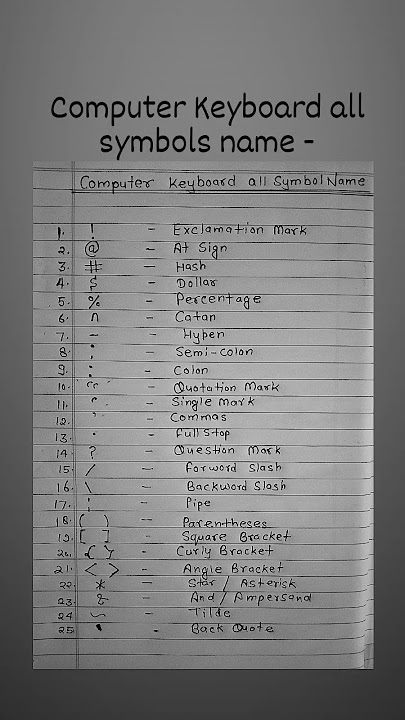 Computer Keyboard all
symbols name -
Computer Keyboard all Symbol Name
1. ! - Exclamation Mark
2. @ - At Sign
3. # - Hash
4. $ - Dollar
5. % - Percentage
6. ^ - Catan
7. - - Hypen
8. ; - Semi-colon
9. : - Colon
10. " " - Quotation Mark
11. ' - Single Mark
12. , - Commas
13. . - Full Stop
14. ? - Question Mark
15. / - Forword Slash
16. \ - Backword Slash
17. ¦ - Pipe
18. ( ) - Parentheses
19. [ ] - Square Bracket
20. { } - Curly Bracket
21. < > - Angle Bracket
22. * - Star / Asterisk
23. & - And / Ampersand
24 ~ - Tilde
25 ` - Back Quote